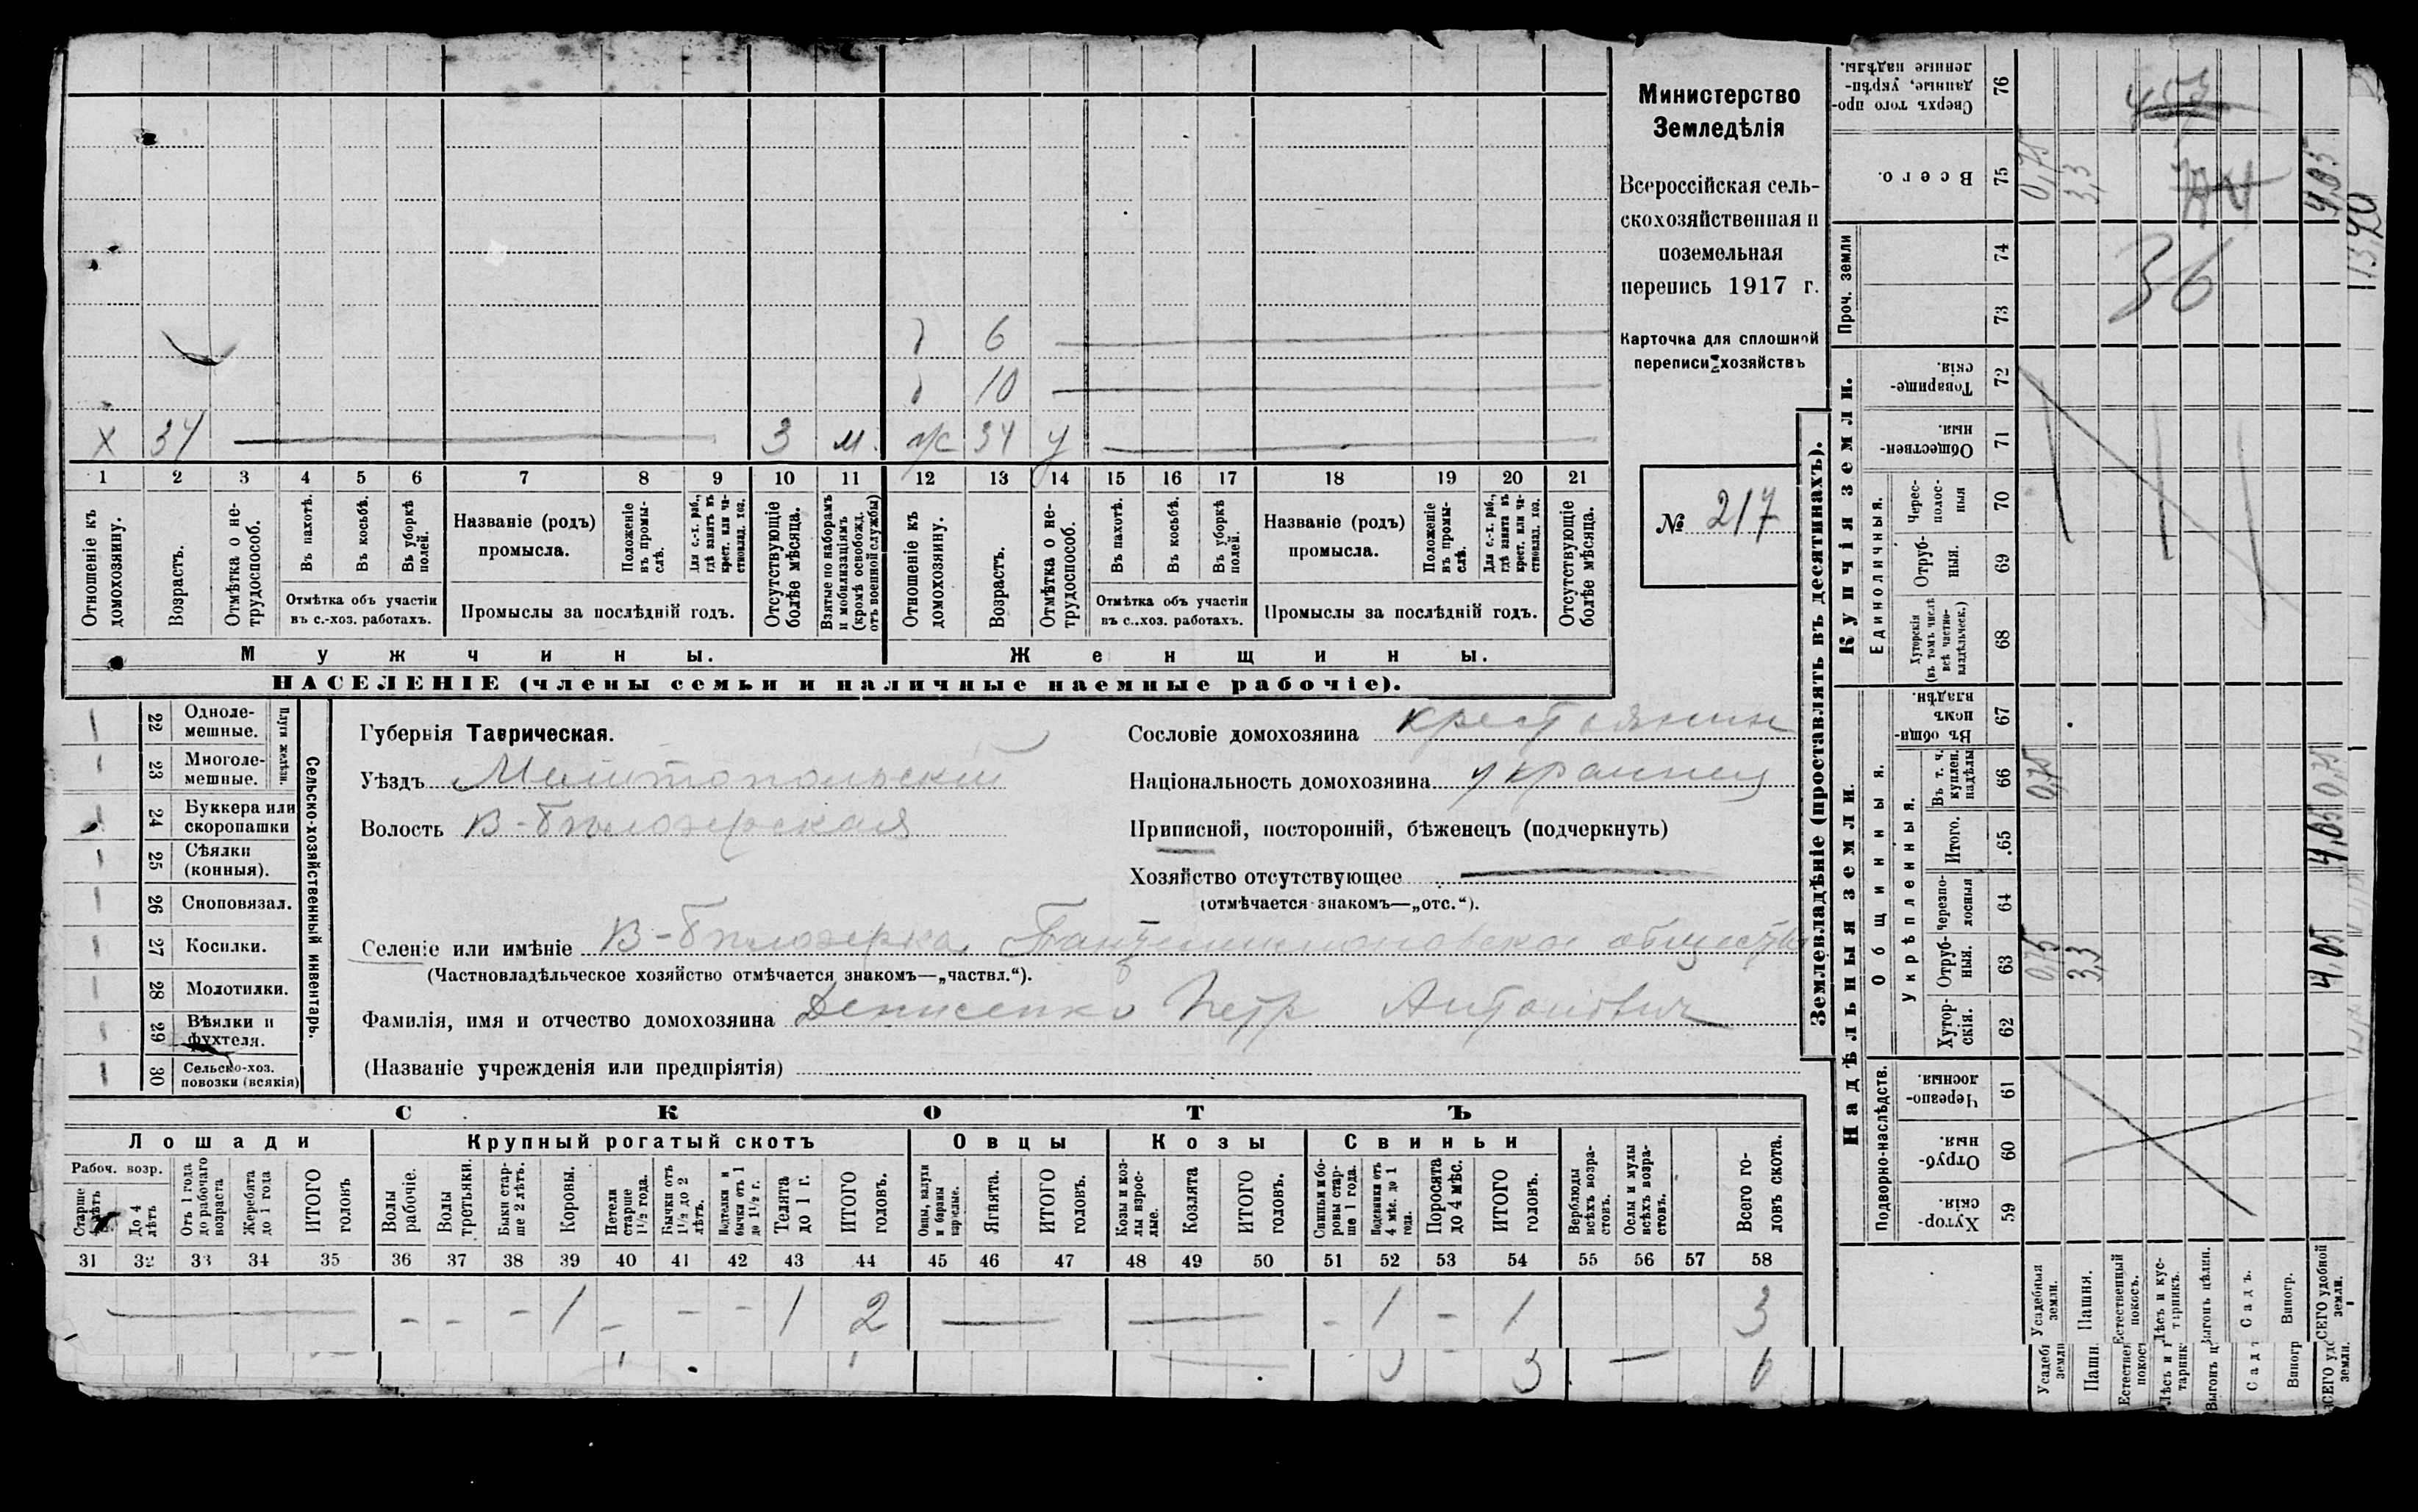 Министерство
Земледѣлія
Всероссійская сель-
скохозяйственная и
поземельная
перепись 1917 г.
Карточка для сплошной
переписи хозяйствъ
№ 217
6
10
х 34 3 м. ж 34 у
1 2 3 4 5 6 7 8 9 10 11 12 13 14 15 16 17 18 19 20 21
Отношеніе къ домохозяину.
Возрастъ.
Отмѣтка о не-трудоспособ.
Въ пахотѣ.
Въ косьбѣ.
Въ уборкѣ полей.
Отмѣтка объ участіи
въ с.-хоз. работахъ.
Названіе (родъ)
промысла.
Положеніе въ промы-слѣ.
Для с.-х. раб., гдѣ занятъ въ крест. или ча-стновлад. хоз.
Промыслы за послѣдній годъ.
Отсутствующіе болѣе мѣсяца.
Взятые по наборамъ и мобилизаціямъ (кромѣ освобожд. отъ военной службы)
Отношеніе къ домохозяину.
Возрастъ.
Отмѣтка о не-трудоспособ.
Въ пахотѣ.
Въ косьбѣ.
Въ уборкѣ полей.
Отмѣтка объ участіи
въ с..хоз. работахъ.
Названіе (родъ)
промысла.
Положеніе въ промы-слѣ.
Для с.-х. раб., гдѣ занятъ въ крест. или ча-стновлад. хоз.
Промыслы за послѣдній годъ.
Отсутствующіе болѣе мѣсяца.
Мужчины. Женщины.
НАСЕЛЕНІЕ (члены семьи и наличные наемные рабочіе).
22 Одноле-мешные.
23 Многоле-мешные.
Плуги желѣзн.
24 Буккера или скоропашки
25 Сѣялки (конныя).
26 Сноповязал.
27 Косилки.
28 Молотилки.
29 Вѣялки и фухтеля.
30 Сельско-хоз. повозки (всякія)
Сельско-хозяйственный инвентарь.
Губернія Таврическая.
Уѣздъ Мелитопольскій
Волость В-Бѣлозерская
Сословіе домохозяина крестьянин
Національность домохозяина украинец
Приписной, посторонній, бѣженецъ (подчеркнуть)
Хозяйство отсутствующее
(отмѣчается знакомъ—„отс.“).
Селеніе или имѣніе В-Бѣлозерка
(Частновладѣльческое хозяйство отмѣчается знакомъ—„частвл.“).
Фамилія, имя и отчество домохозяина Денисенко Петр Антонович
(Названіе учрежденія или предпріятія)
СКОТЪ
Лошади Крупный рогатый скотъ Овцы Козы Свиньи
Рабоч. возр.
Старше 4 лѣтъ
До 4 лѣтъ
Отъ 1 года до рабочаго возраста
Жеребята до 1 года
ИТОГО головъ
Волы рабочіе.
Волы третьяки.
Быки стар-ше 2 лѣтъ.
Коровы.
Нетели старше 1½ года.
Бычки отъ 1½ до 2 лѣтъ.
Нетельки и бычки отъ 1 до 1½ г.
Телята до 1 г.
ИТОГО головъ.
Овцы, валухи и бараны взрослые.
Ягнята.
ИТОГО головъ.
Козы и коз-лы взрос-лые.
Козлята
ИТОГО головъ.
Свиньи и бо-ровы стар-ше 1 года.
Подсвинки отъ 4 мѣс. до 1 года.
Поросята до 4 мѣс.
ИТОГО головъ.
Верблюды всѣхъ возра-стовъ.
Ослы и мулы всѣхъ возра-стовъ.
Всего го-ловъ скота.
31 32 33 34 35 36 37 38 39 40 41 42 43 44 45 46 47 48 49 50 51 52 53 54 55 56 57 58
— - - - 1 - - - 1 2 — — - 1 - 1 3
3
Землевладѣніе (проставлять въ десятинахъ).
Купчія земли.
Надѣльныя земли.
76 Сверхъ того про-данные, укрѣп-ленные надѣлы.
75 Всего. 0,75 3,3 4,05
Проч. земли
74
73
36
72 Товарище-скія.
71 Обществен-ныя.
Единоличныя.
70 Черес-полос-ныя
69 Отруб-ныя.
68 Хуторскія (въ томъ числѣ всѣ частно-владѣльческ.)
Общинныя.
67 Въ общин-номъ владѣн.
Укрѣпленныя.
66 Въ т. ч. куплен. надѣлы 0,75
65 Итого. 4,05
64 Черезпо-лосныя
63 Отруб-ныя. 0,75 3,3 4,05
62 Хутор-скія.
Подворно-наслѣдств.
61 Черезпо-лосныя.
60 Отруб-ныя.
59 Хутор-скія.
Усадебныя земли.
Пашня.
Естественный покосъ.
Лѣсъ и кус-тарникъ.
Выгонъ цѣлин.
Садъ.
Виногр.
ВСЕГО удобной земли.